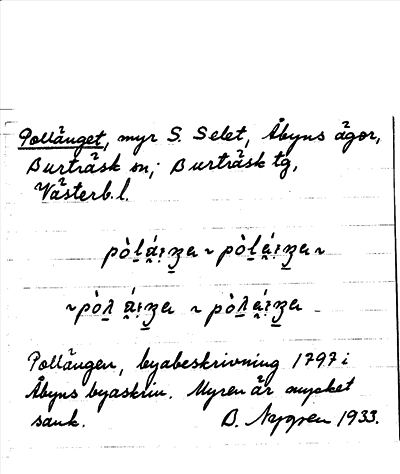 Pollänget, myr S. Selet, Åbyns ägor,
Burträsk sn; Burträsk tg,
Västerb.l.
Pollängen, byabeskrivning 1797 i
Åbyns byaskriv. Myren är mycket
sank. B. Nygren 1933.